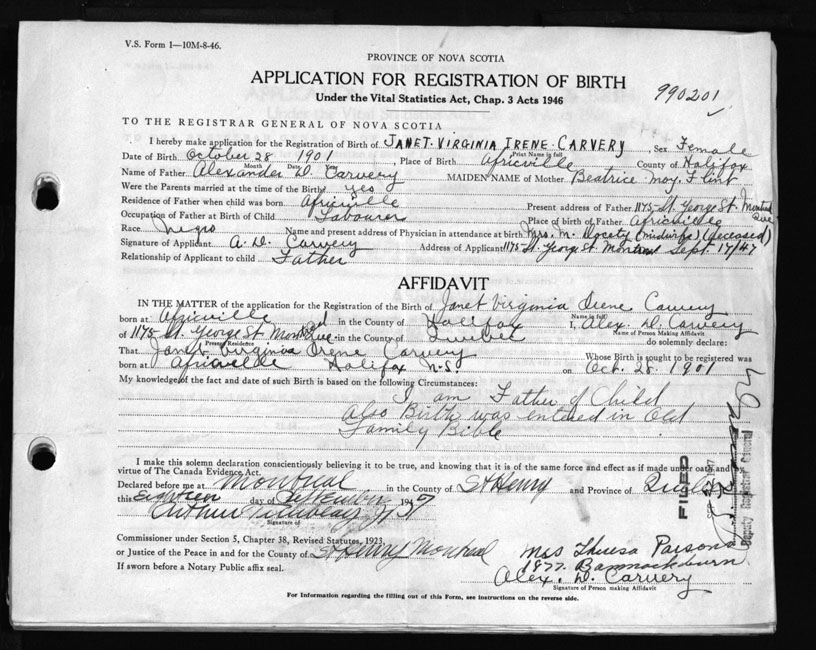 V.S. Form 1—10M-8-46.
PROVINCE OF NOVA SCOTIA
APPLICATION FOR REGISTRATION OF BIRTH
Under the Vital Statistics Act, Chap. 3 Acts 1946
990201
TO THE REGISTRAR GENERAL OF NOVA SCOTIA
I hereby make application for the Registration of Birth of JANET VIRGINIA IRENE CARVERY, Sex Female
Print Name in full
Date of Birth October 28 1901, Place of Birth Africville County of Halifox
Month Day Year
Name of Father Alexander D. Carvery MAIDEN NAME of Mother Beatrice May Flint
Were the Parents married at the time of the Birth? yes
Residence of Father when child was born Africville Present address of Father 1175 St. George St. Montreal Que
Occupation of Father at Birth of Child Labourer Place of birth of Father Africville
Race Negro Name and present address of Physician in attendance at birth Mrs. M. (midwife) (deceased)
Signature of Applicant A. D. Carvery Address of Applicant 1175 St. George St. Montreal Sept 17/47
Relationship of Applicant to child Father
AFFIDAVIT
IN THE MATTER of the application for the Registration of the Birth of Janet Virginia Irene Carvery
Name in full
born at Africville in the County of Halifox I, Alex. D. Carvery
Name of Person Making Affidavit
of 1175 St. George St Montreal in the County of Quebec do solemnly declare:
Present Residence
That Janet Virginia Irene Carvery Whose Birth is sought to be registered was
born at Africville Halifox N.S. on Oct. 28. 1901
My knowledge of the fact and date of such Birth is based on the following Circumstances:
I am Father of Child
Also Birth was entered in Old
Family Bible
I make this solemn declaration conscientiously believing it to be true, and knowing that it is of the same force and effect as if made under oath and
virtue of The Canada Evidence Act.
Declared before me at Montreal in the County of St Henry and Province of Quebec
this eighteen day of September 1947
Arthur
Signature of
Commissioner under Section 5, Chapter 38, Revised Statutes, 1923,
or Justice of the Peace in and for the County of St Henry Montreal
If sworn before a Notary Public affix seal.
Mrs Theresa Parsons
1877. Bannockburn
Alex. D. Carvery
Signature of Person making Affidavit
For Information regarding the filling out of this Form, see instructions on the reverse side.
FILED
Deputy Registrar General